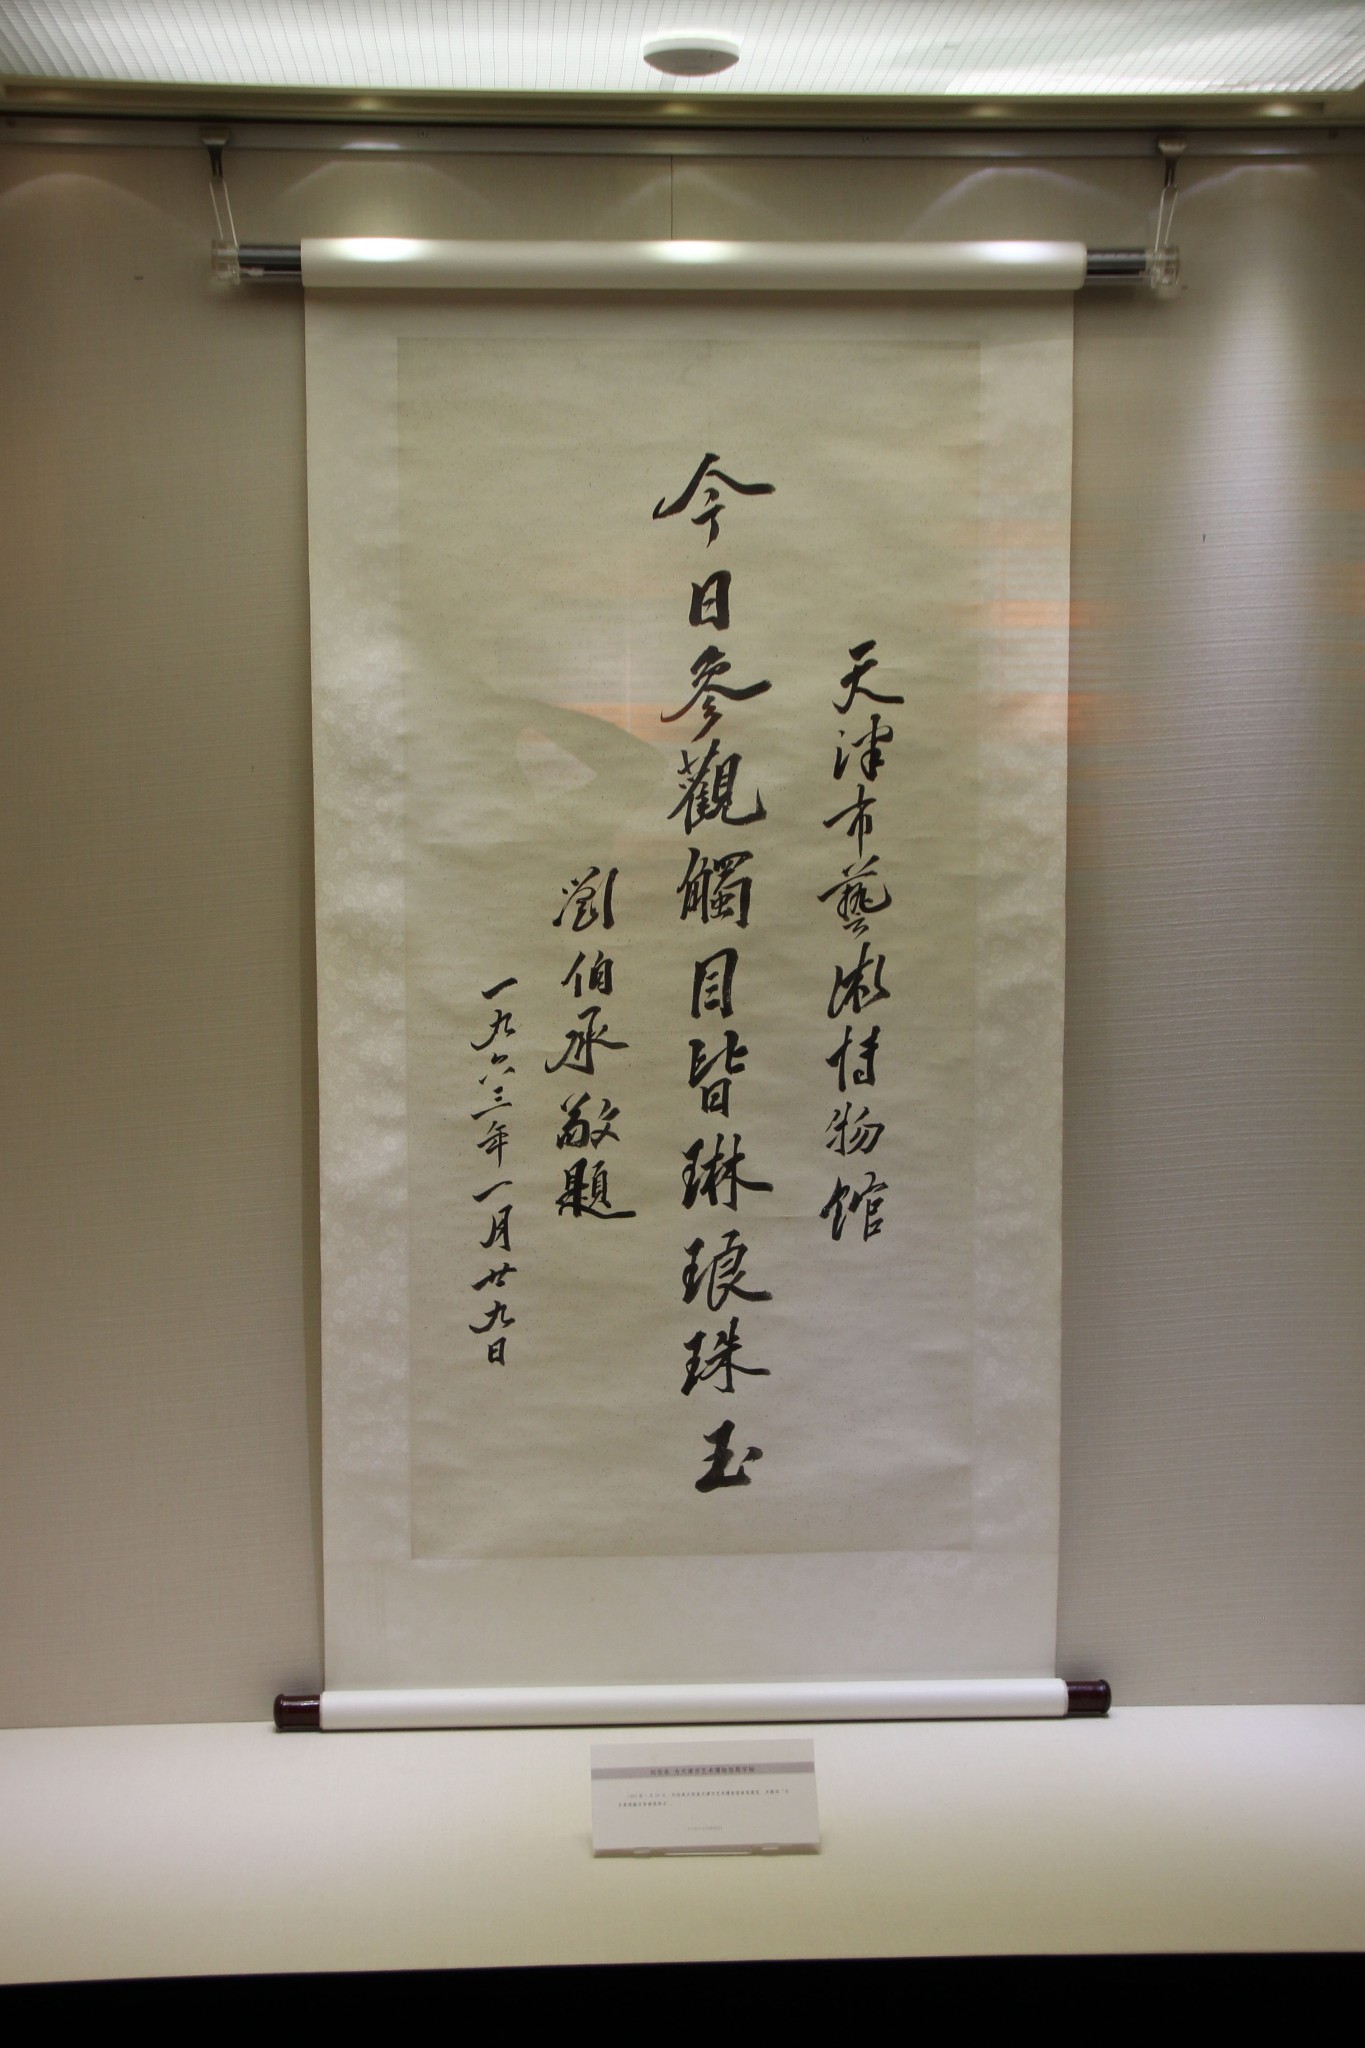 天津市藝術博物馆
今日參觀觸目皆琳琅珠玉
劉伯承敬題
一九六三年一月廿九日